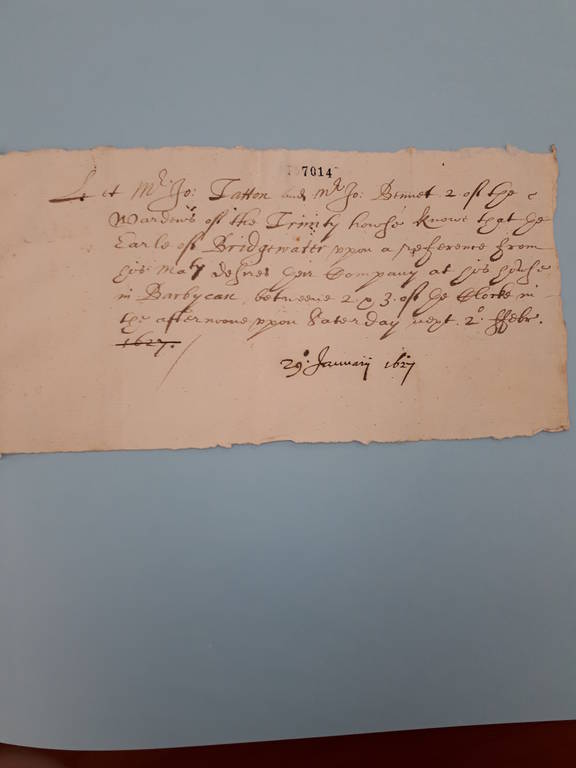 7014
Let Mr. Jo: Tatton and Mr. Jo: Bennet 2 of the
Wardens of the Trinity house knowe that the
Earle of Bridgewater vpon a reference from
his Maty desires their Company at his house
in Barbycan, betweene 2 & 3. of the Clocke in
the afternoone vpon Saterday next. 2o. ffebr.
1627.
29o. Januarij 1627